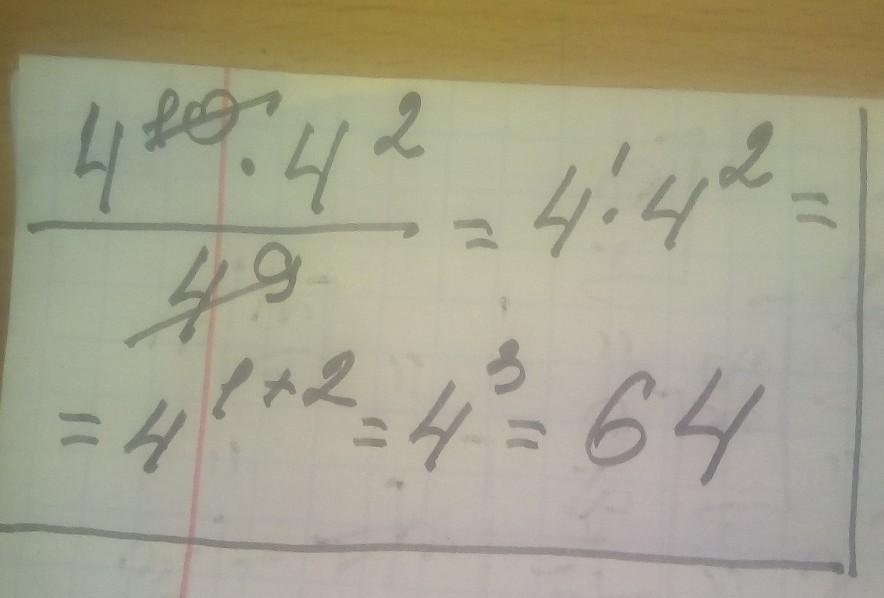 4¹⁰ · 4²
4⁹
= 4¹ · 4² =
= 4¹⁺² = 4³ = 64